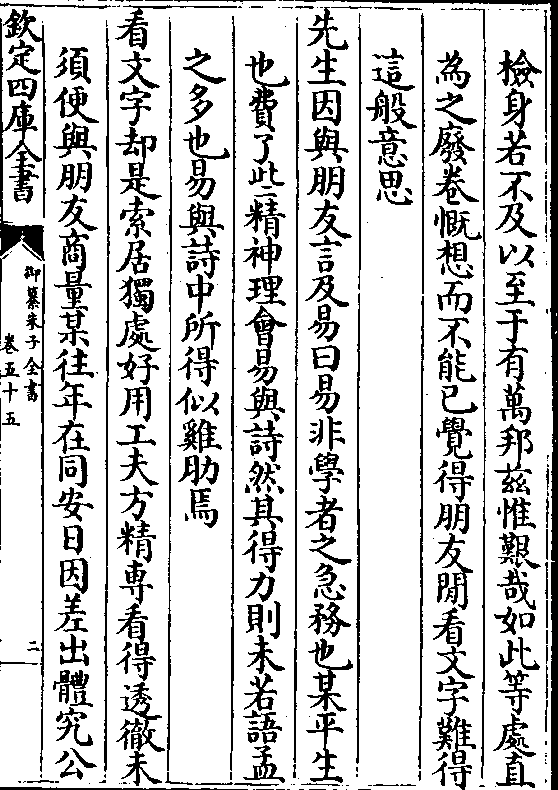 檢身若不及以至于有萬邦茲惟艱哉如此等處直
為之廢卷慨想而不能已覺得朋友間看文字難得
這般意思
先生因與朋友言及易曰易非學者之急務也某平生
也費了些精神理會易與詩然其得力則未若語孟
之多也易與詩中所得似雞肋焉
看文字却是索居獨處好用工夫方精專看得透徹未
須便與朋友商量某往年在同安日因差出體究公
欽定四庫全書
御纂朱子全書
卷五十五
二